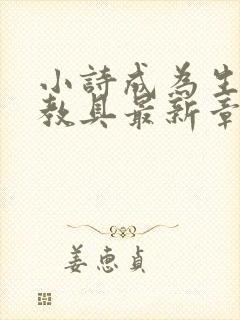 小詩成為生
教具最新章
姜惠貞